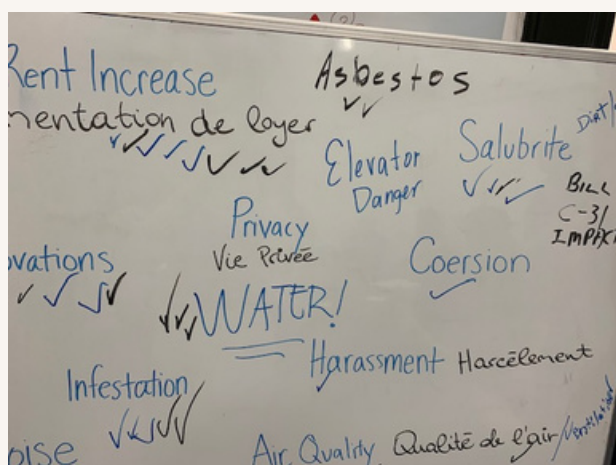 Rent Increase
mentation de loyer
Asbestos
Elevator
Danger
Salubrite
Dirt/
Bill
C-31
IMPAC
Privacy
Vie Privée
ovations
Coersion
WATER!
Harassment Harcèlement
Infestation
oise
Air Quality Qualité de l'air/Ventilation